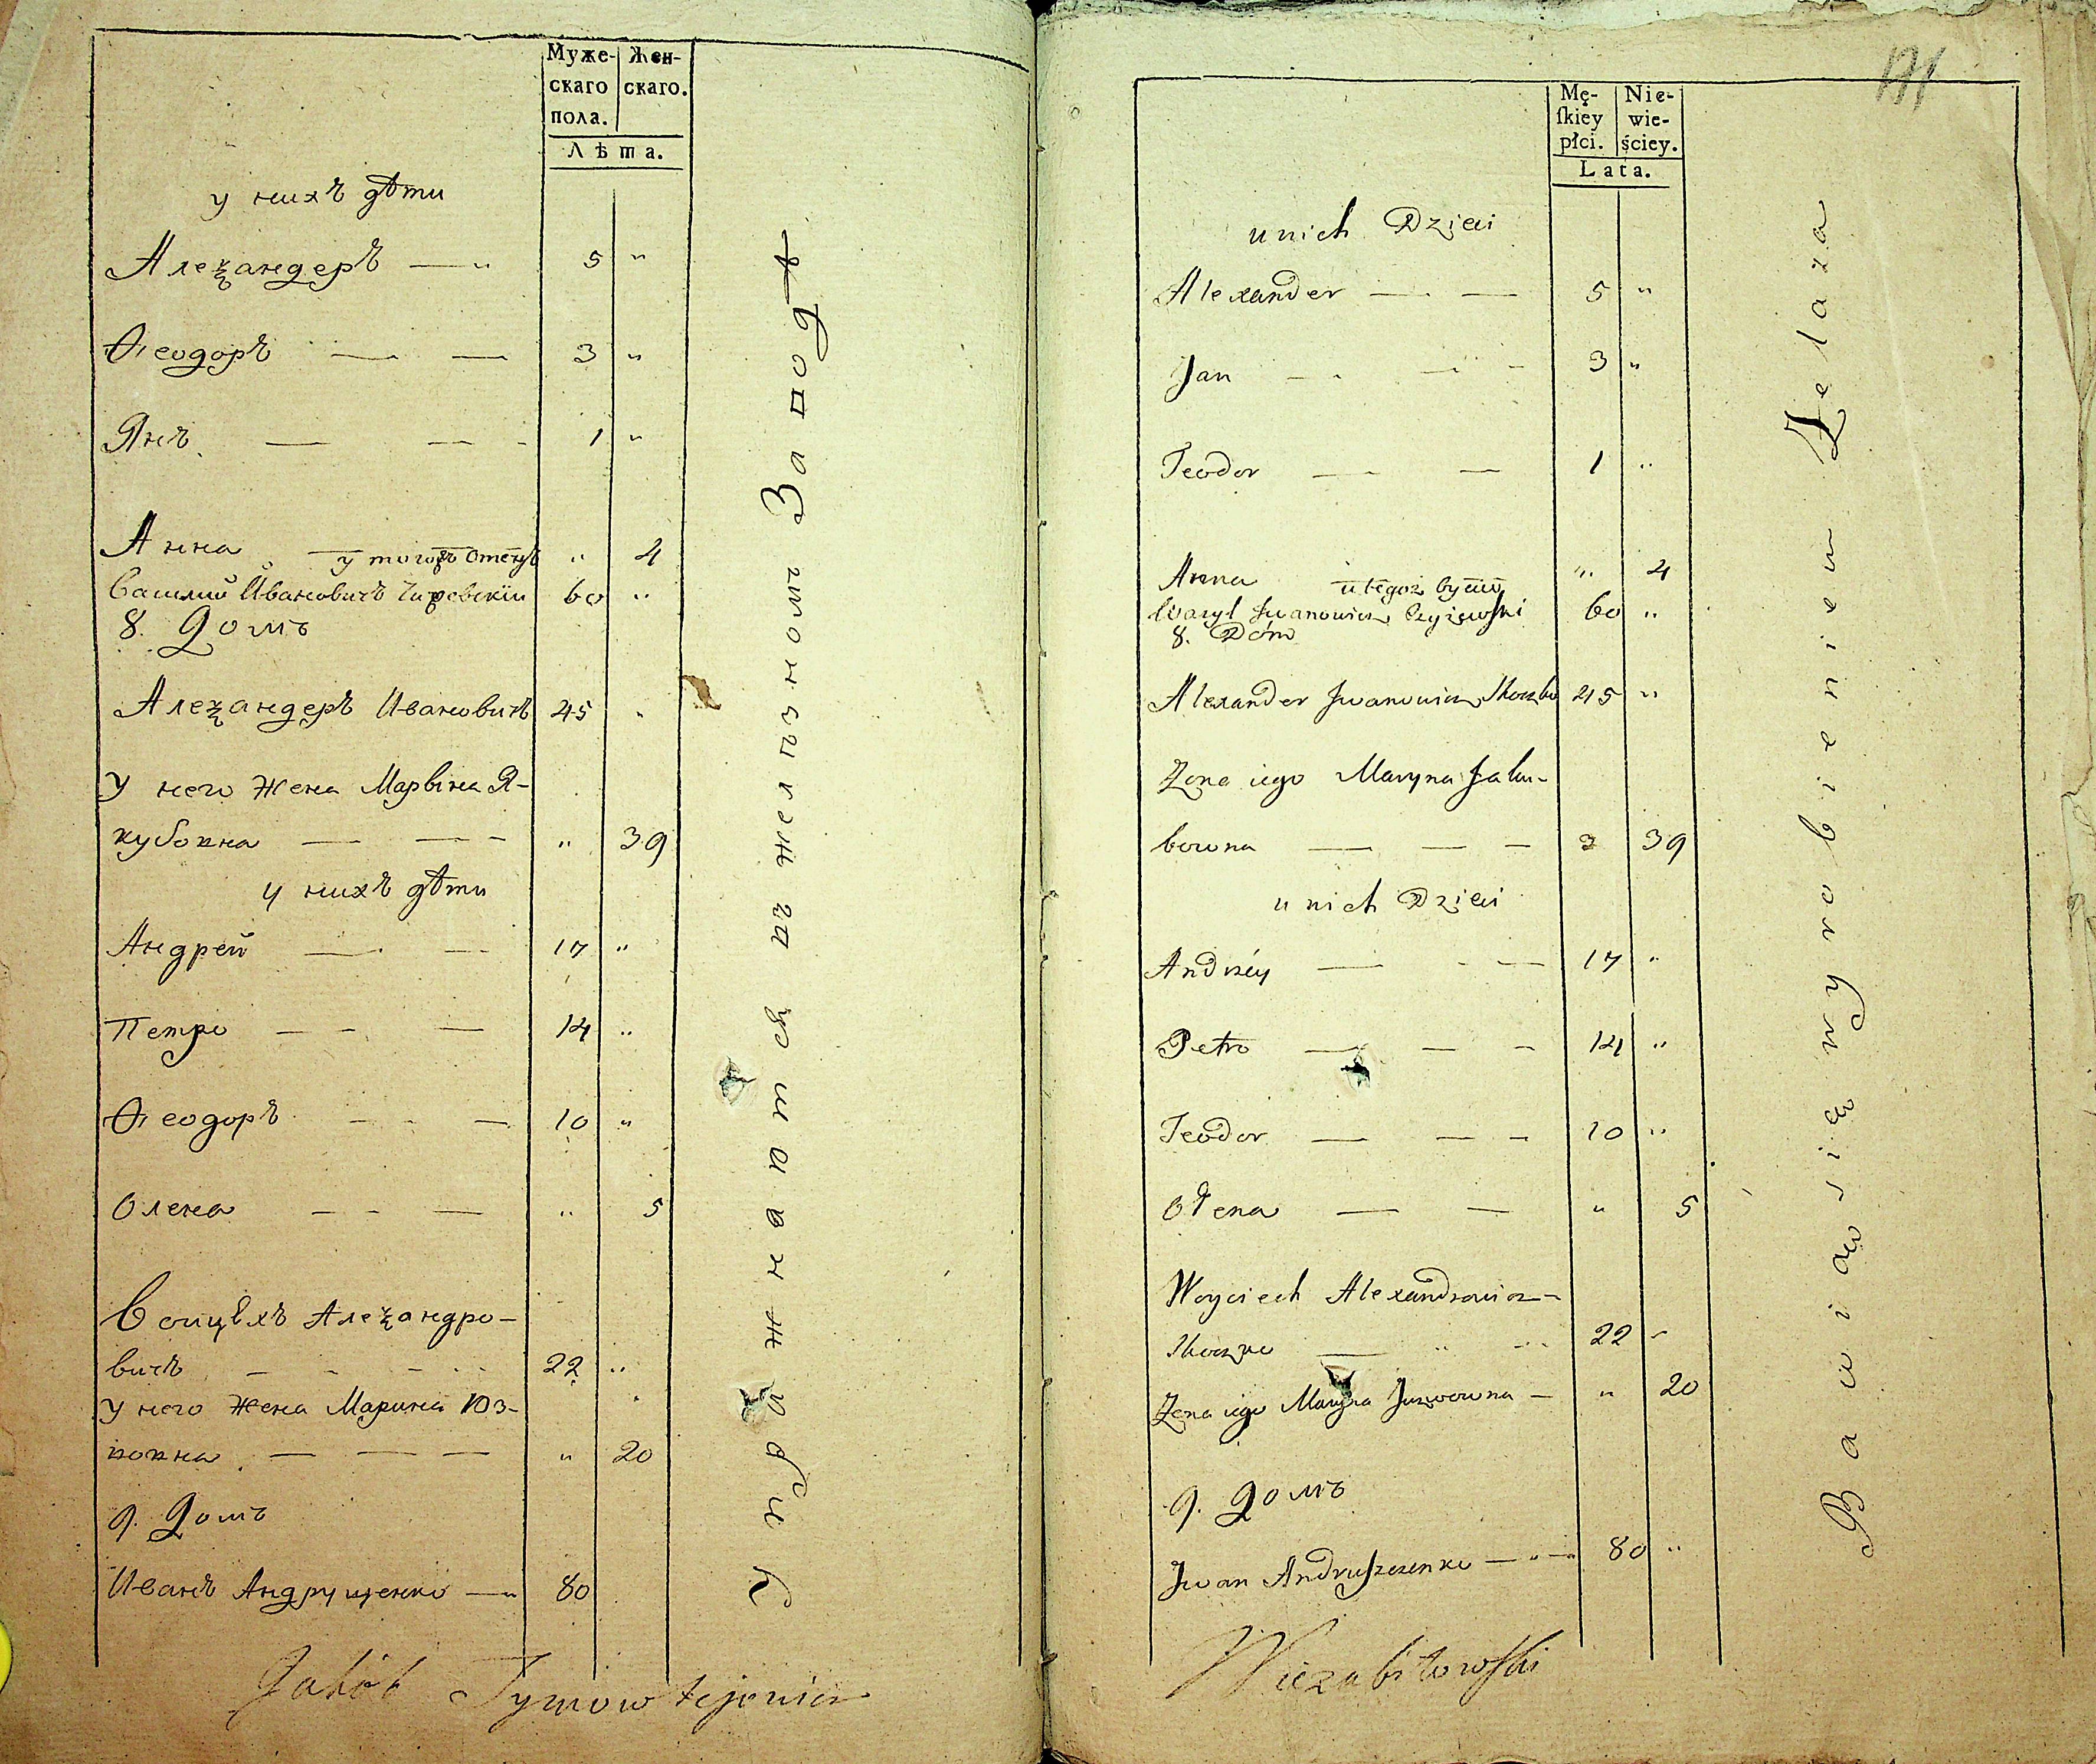 Муже- Жен-
скаго скаго.
пола.
Лѣта.
у нихъ дѣти
Алеѯандеръ — " 5 "
Ѳеодоръ — — 3 "
Янъ — — - 1 "
Анна — " 4
у тогожъ отецъ
Василий Ивановичъ 60 "
8. Домъ
Алеѯандеръ Ивановичъ 45 "
У него жена Марвіна Я-
кубовна — — - " 39
у нихъ дѣти
Андрей — — 17 "
Петро — - — 14 "
Ѳеодоръ - - — 10 "
Олена — - — " 5
Воицѣхъ Алеѯандро-
вичъ - - - - 22 "
У него жена Марина Юз-
ковна — — — " 20
9. Домъ
Иванъ Андрущенко — " 80
Упражнаются из желѣзномъ Заводѣ
Jakób
171
Mę- Nie-
ſkiey wie-
płci. ściey.
Lata.
u nich Dzieci
Alexander — — 5 "
Jan - - - - 3 "
Teodor — — 1 "
Anna " 4
u tegoż
Wasyl Iwanowicz Czyżewski 60 "
8. Dóm
Alexander Iwanowicz 45 "
Żona iego Maryna Jaku-
bowna — — - 39
u nich Dzieci
Andrzéy — - — 17 "
Petro — — - 14 "
Teodor — — - 10 "
Ołena — — " 5
Woyciech Alexandrowicz-
— " - 22 "
Żona iego Maryna Juzwowna — " 20
9. Домъ
Iwan Andruszczenko — " — 80 "
Bawiąsię wyrobieniem Żelaza